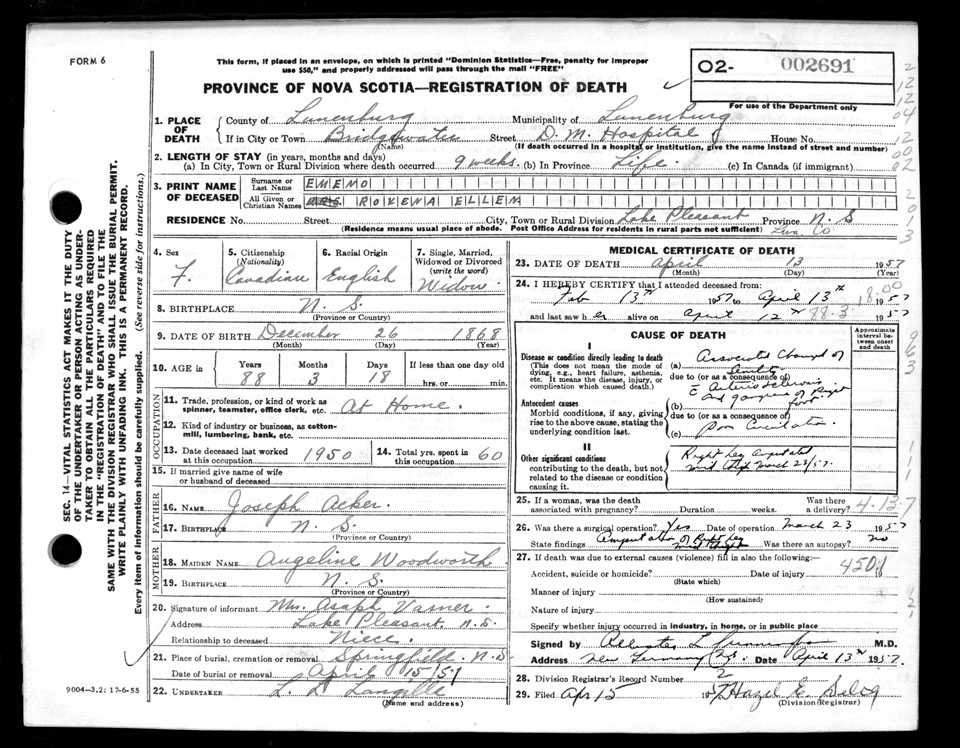 FORM 6
This form, if placed in an envelope, on which is printed "Dominion Statistics—Free, penalty for improper
use $50," and properly addressed will pass through the mail "FREE"
PROVINCE OF NOVA SCOTIA—REGISTRATION OF DEATH
O2- 002691
For use of the Department only
1. PLACE OF DEATH
County of Lunenburg Municipality of Lunenburg
If in City or Town Bridgewater Street D. M. Hospital House No.
(Name) (If death occurred in a hospital or institution, give name instead of street and number)
2. LENGTH OF STAY (in years, months and days)
(a) In City, Town or Rural Division where death occurred 9 weeks. (b) In Province Life. (c) In Canada (if immigrant)
3. PRINT NAME OF DECEASED
Surname or Last Name EMENO
All Given or Christian Names MRS ROXENA ELLEN
RESIDENCE No. Street City, Town or Rural Division Lake Pleasant Province N. S
(Residence means usual place of abode. Post Office Address for residents in rural parts not sufficient) Lun. Co
4. Sex F.
5. Citizenship (Nationality) Canadian
6. Racial Origin English
7. Single, Married, Widowed or Divorced (write the word) Widow.
8. BIRTHPLACE N. S.
(Province or Country)
9. DATE OF BIRTH December 26 1868
(Month) (Day) (Year)
10. AGE in Years 88 Months 3 Days 18 If less than one day old hrs. or min.
OCCUPATION
11. Trade, profession, or kind of work as spinner, teamster, office clerk, etc. At Home.
12. Kind of industry or business, as cotton-mill, lumbering, bank, etc.
13. Date deceased last worked at this occupation 1950
14. Total yrs. spent in this occupation 60
15. If married give name of wife or husband of deceased
FATHER
16. NAME Joseph Acker.
17. BIRTHPLACE N. S.
(Province or Country)
MOTHER
18. MAIDEN NAME Angeline Woodworth
19. BIRTHPLACE N. S.
(Province or Country)
20. Signature of informant Mrs. Asaph Varner.
Address Lake Pleasant. N. S.
Relationship to deceased Niece.
21. Place of burial, cremation or removal Springfield. N. S
Date of burial or removal April 15/57
22. UNDERTAKER L. L. Langille
(Name and address)
9004-3.2: 17-6-55
MEDICAL CERTIFICATE OF DEATH
23. DATE OF DEATH April 13 1957
(Month) (Day) (Year)
24. I HEREBY CERTIFY that I attended deceased from:
Feb 13th 1957 to April 13th 1957
and last saw her alive on April 12th 1957
CAUSE OF DEATH
Approximate interval between onset and death
I
Disease or condition directly leading to death
(This does not mean the mode of dying, e.g., heart failure, asthenia, etc. It means the disease, injury, or complication which caused death.)
(a) Associated Changes of Senility
due to (or as a consequence of)
Antecedent causes
Morbid conditions, if any, giving rise to the above cause, stating the underlying condition last.
(b) and gangrene of Right foot.
due to (or as a consequence of)
(c) Poor Circulation.
II
Other significant conditions
contributing to the death, but not related to the disease or condition causing it.
Right Leg Amputated
mid thigh March 23/57.
25. If a woman, was the death associated with pregnancy? Duration weeks. Was there a delivery? 4-13 7
26. Was there a surgical operation? Yes Date of operation March 23 1957
State findings Amputation of Right Leg mid thigh Was there an autopsy? no
27. If death was due to external causes (violence) fill in also the following:
Accident, suicide or homicide? Date of injury 19
4501
(State which)
Manner of injury
(How sustained)
Nature of injury
Specify whether injury occurred in industry, in home, or in public place
Signed by M.D.
Address New Germany N.S. Date April 13th 1957.
28. Division Registrar's Record Number 2
29. Filed Apr 15 1957 Hazel E. Selig
(Division Registrar)
SEC. 14—VITAL STATISTICS ACT MAKES IT THE DUTY
OF THE UNDERTAKER OR PERSON ACTING AS UNDER-
TAKER TO OBTAIN ALL THE PARTICULARS REQUIRED
IN THE "REGISTRATION OF DEATH" AND TO FILE THE
SAME WITH THE DIVISION REGISTRAR WHO SHALL ISSUE THE BURIAL PERMIT.
WRITE PLAINLY WITH UNFADING INK. THIS IS A PERMANENT RECORD.
Every item of information should be carefully supplied. (See reverse side for instructions.)